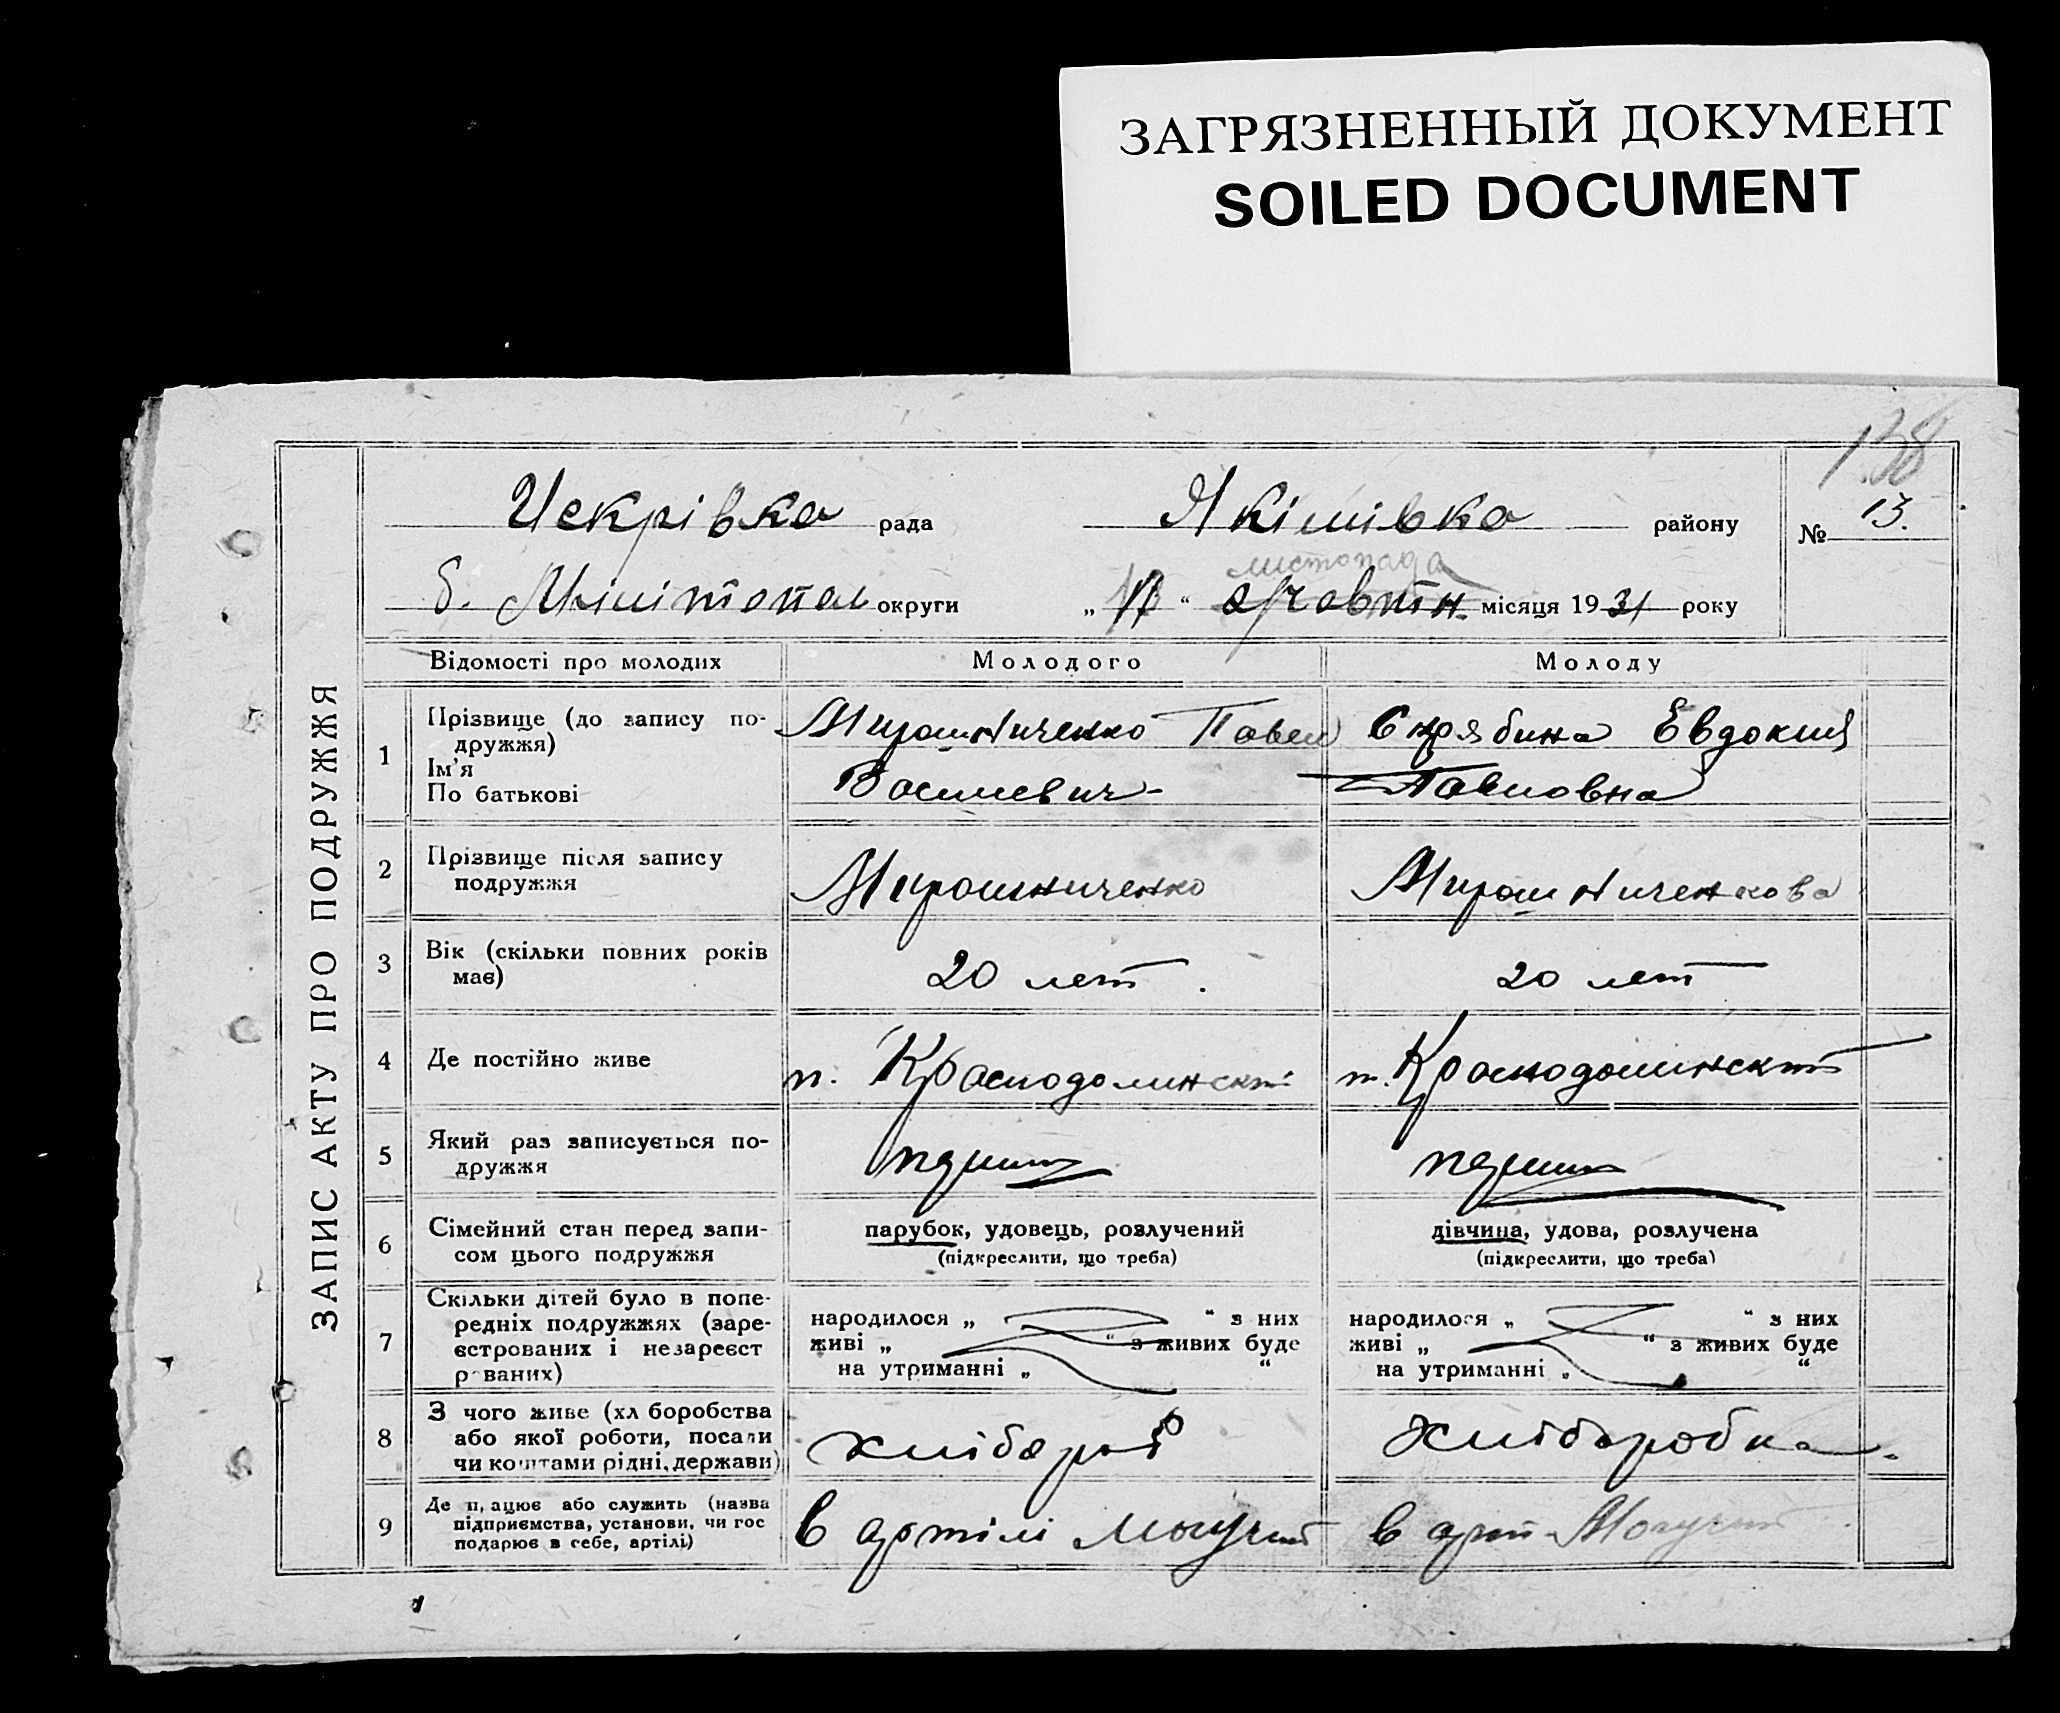 ЗАГРЯЗНЕННЫЙ ДОКУМЕНТ
SOILED DOCUMENT
138
ЗАПИС АКТУ ПРО ПОДРУЖЖЯ
Искрівка рада Якімівка району № 13.
листопада
б. Мілітопол округи „ “ місяця 1931 року
Відомості про молодих Молодого Молоду
1 Прізвище (до запису по-
дружжя)
Ім'я
По батькові
Мирошниченко Павел
Василевич
Скрябина Евдокия
Павловна
2 Прізвище після запису
подружжя
Мирошниченко
Мирошниченкова
3 Вік (скільки повних років
має)
20 лет.
20 лет
4 Де постійно живе
п. Краснодолинский
п. Краснодолинский
5 Який раз записується по-
дружжя
6 Сімейний стан перед запи-
сом цього подружжя
парубок, удовець, розлучений
(підкреслити, що треба)
дівчина, удова, розлучена
(підкреслити, що треба)
7 Скільки дітей було в попе-
редніх подружжях (заре-
єстрованих і незареєст
р ваних)
народилося „ “ з них
живі „ “ з живих буде
на утриманні „ “
народилося „ “ з них
живі „ “ з живих буде
на утриманні „ “
8 З чого живе (хл боробства
або якої роботи, посади
чи коштами рідні, держави)
хлібороб
хлібаробка.
9 Де п, ацює або служить (назва
підприємства, установи, чи гос
подарює в себе, артілі)
в артілі Могучий
в арт Могучий